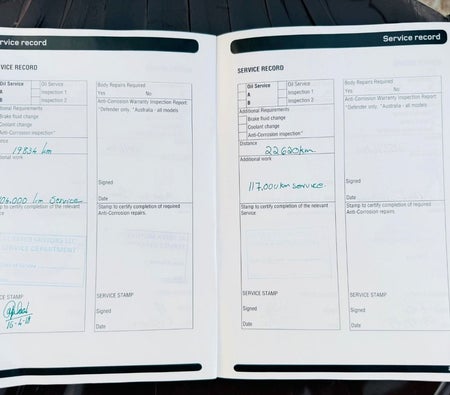 rvice record
VICE RECORD
Oil Service
A
B
Oil Service
Inspection 1
Inspection 2
Additional Requirements
Brake fluid change
Coolant change
Anti-Corrosion inspection*
19834 km
work
Service
to certify completion of the relevant
SERVICE DEPARTMENT
CE STAMP
Body Repairs Required
Yes No
Anti-Corrosion Warranty Inspection Report:
*Defender only, *Australia - all models
Signed
Date
Stamp to certify completion of required
Anti-Corrosion repairs.
SERVICE STAMP
Signed
Date
Service record
SERVICE RECORD
Oil Service
A
B
Oil Service
Inspection 1
Inspection 2
Additional Requirements
Brake fluid change
Coolant change
Anti-Corrosion inspection*
Distance
22620km
Additional work
117,000km service
Stamp to certify completion of the relevant
Service
SERVICE STAMP
Signed
Date
Body Repairs Required
Yes No
Anti-Corrosion Warranty Inspection Report:
*Defender only, *Australia - all models
Signed
Date
Stamp to certify completion of required
Anti-Corrosion repairs.
SERVICE STAMP
Signed
Date